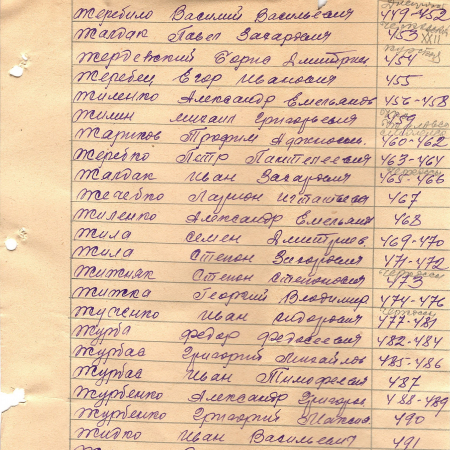 Жеребило Василий Васильевич 449-452
Жалдак Павел Захарович 453
Жердевский Борис Дмитриев 454
Жеребец Егор Иванович 455
Жиленко Александр Емельянов 456-458
Жилин Михаил Григорьевич 459
Жариков Трофим 460-462
Жеребко Петр Пантелеевич 463-464
Жалдак Иван Захарович 465-466
Ларион 467
Жиленко Александр Емельянов 468
Жила Семен Дмитриев 469-470
Жила Степан Захарович 471-472
Жижняк Степан Степанович 473
Жижка Георгий Владимир 474-476
Жученко Иван Сидорович 477-481
Журба Федор Федосеевич 482-484
Журбас Григорий Михайлов 485-486
Журбас Иван Тимофеевич 487
Журбенко Александр Григорь 488-489
Журбенко Григорий 490
Жидко Иван Васильевич 491